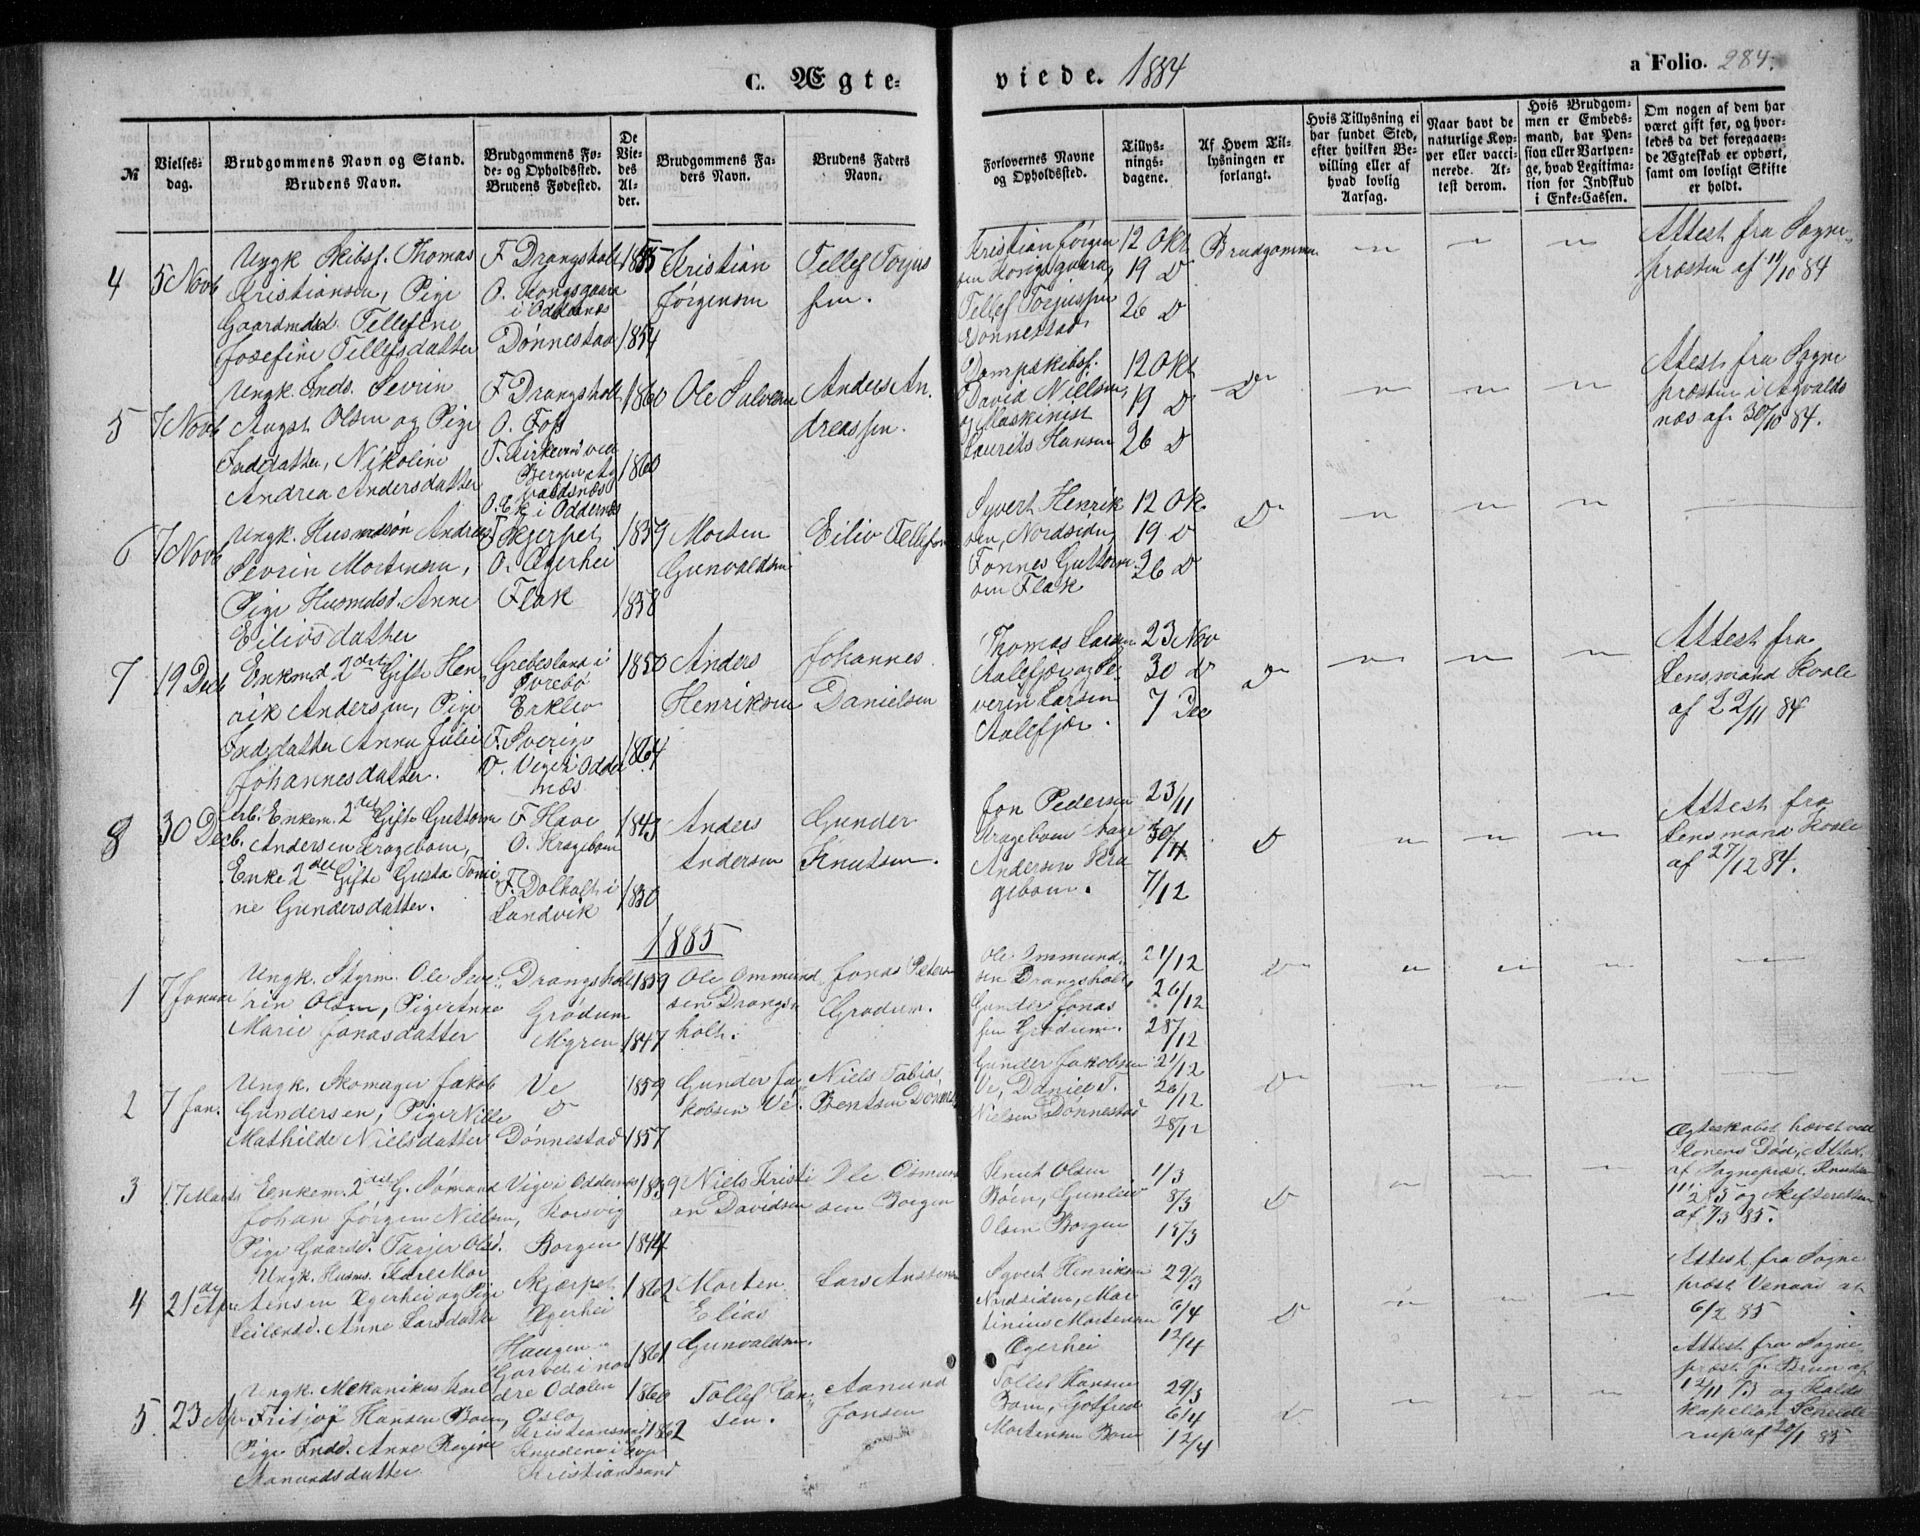 C. Ægte- viede. 1884
a Folio. 284.
№
Vielses-
dag.
Brudgommens Navn og Stand.
Brudens Navn.
Brudgommens Fø-
de- og Opholdssted.
Brudens Fødested.
De
Vie-
des
Al-
der.
Brudgommens Fa-
ders Navn.
Brudens Faders
Navn.
Forlovernes Navne
og Opholdssted.
Tillys-
nings-
dagene.
Af Hvem Til-
lysningen er
forlangt.
Hvis Tillysning ei
har fundet Sted,
efter hvilken Be-
villing eller af
hvad lovlig
Aarsag.
Naar havt de
naturlige Kop-
per eller vacci-
nerede. At-
test derom.
Hvis Brudgom-
men er Embeds-
mand, har Pen-
sion eller Vartpen-
ge, hvad Legitima-
tion for Indskud
i Enke-Cassen.
Om nogen af dem har
været gift før, og hvor-
ledes da det foregaaen-
de Ægteskab er ophørt,
samt om lovligt Skifte
er holdt.
4
5 Novb
Ungk Skibsf. Thomas
Kristiansen, Pige
Gaardmdd. Tellefine
Josefine Tellefsdatter
F Drangsholt
O. Kongsgaard
i Oddernes
Dønnestad
1855
1854
Kristian
Jørgensen
Tellef Torjus
sen.
Kristian Jørgen
sen Kongsgaard,
Tellef Torjussen
Dønnestad
12 Okt
19 D
26 D
Brudgommen
Attest fra Sogne
præsten af 11/10 84
5
7 Novb
Ungk. Inds. Sevrin
August Olsen og Pige
Indsdatter, Nikoline
Andrea Andersdatter
F Drangsholt
O. Foss
F. Kirkevei ved
Bergen Ag
valdsnæs
O. Ek i Oddernes
1860
1860
Ole Salvesen
Anders An.
dreassen.
Dampskibsf.
David Nielsen,
og Maskinist
Laurits Hansen
12 Okt
19 D
26 D
Do
Attest fra Sogne
præsten i Agvalds
næs af 30/10 84.
6
7 Novb
Ungk. Husmdssøn Andreas
Sevrin Mortensen,
Pige Husmdsd. Anne
Eilivsdatter
F Skjerpet
O. Ægerhei
Flak
1859
1858
Morten
Gunvaldsen
Eiliv Tellefsen
Syvert Henrik
sen, Nordsiden,
Tønnes Guttorm
sen Flak
12 Ok.
19 D
26 D
Do
7
19 Decb
Enkemd 2det Gifte Hen
rik Andersen, Pige
Indsdatter Anna Julie
Johannesdatter.
Grebesland i
Øvrebø
Erkleiv
F. Sverige
O. Vige i Odder
næs
1850
1864
Anders
Henriksen
Johannes
Danielsen
Thomas Larsen
Aalefjær og Se
verin Larsen
Aalefjær.
23 Nov
30 D
7 Dec
Do
Attest fra
Lensmand Kvale
af 22/11 84
8
30 Decb.
Arb. Enkem. 2det Gifte Guttorm
Andersen Kragebom,
Enke 2det Gifte Gusta Tomi
ne Gundersdatter.
F Have
O. Kragebom
F. Dolholt i
Landvik
1843
1830
Anders
Andersen
Gunder
Knutsen.
Jon Pedersen
Kragebom Aage
Andersen Kra
gebom.
23/11
30/11
7/12
D
Attest fra
Lensmand Kvale
af 27/12 84.
1885
1
7 Januar
Ungk. Styrm. Ole Seve-
rin Olsen, Pige Anne
Marie Jonasdatter
Drangsholt
Grødum
Mgren
1859
1847
Ole Ommund
sen Drangs
holt.
Jonas Peters
Grødum.
Ole Ommund.
sen Drangsholt,
Gunder Jonas
sen Grødum.
21/12
26/12
28/12
Do
2
7 Jan.
Ungk. Skomager Jakob
Gundersen, Pige Nille
Mathilde Nielsdatter
Ve
D
Dønnestad
1859
1857
Gunder Ja
kobsen Ve.
Niels Tobias
Bentsen Dønnes
Gunder Jakobsen
Ve, Daniel T.
Nielsen Dønnestad
21/12
26/12
28/12
Do
3
17 Marts
Eenkem. 2det G. Sømand
Johan Jørgen Nielsen,
Pige Gaardd. Tarjer Olsd.
Vige i Oddernes
Korsvig
Borgen
1839
1844
Niels Kristi
an Davidsen
Ole Osmund
sen Borgen
Knut Olsen
Bøen, Gunleiv
Olsen Borgen
1/3
8/3
15/3
D
Ægteskabet hævet ved
Konens Død, Attest
af Sognepræst. Knutsen
11/2 85 og Skifteretten
af 7/3 85.
4
21de Apr
Ungk. Husms. Karl Mor
tensen Ægerhei og Pige
Leilændd. Anne Larsdatter
Skjærpet
Ægerhei
Haugen
Garbet i nor
dre Odalen
1862
1861
Morten
Elias
Gunvaldsen.
Lars Anstensen
Syvert Henriksen
Nordsiden, Mar
tinius Mortensen
Ægerhei
29/3
6/4
12/4
D
Attest fra Sogne
præst Venaas af
6/2 85
5
23 Apr
Ungk. Mekanikus Karl
Fritjof Hansen Boen,
Pige Indd. Anne Regine
Aamundsdatter
Oslo
Kristianssand
Knudene i Evje
Kristianssand
1860
1862
Tollef Han
sen.
Aamund
Jonsen
Tollef Hansen
Boen, Gotfred
Mortensen Boen
29/3
6/4
12/4
D
Attest fra Sogne
præst J. Brun af
12/11 73 og Kalds
kapellan Schelde
rup af 20/1 85